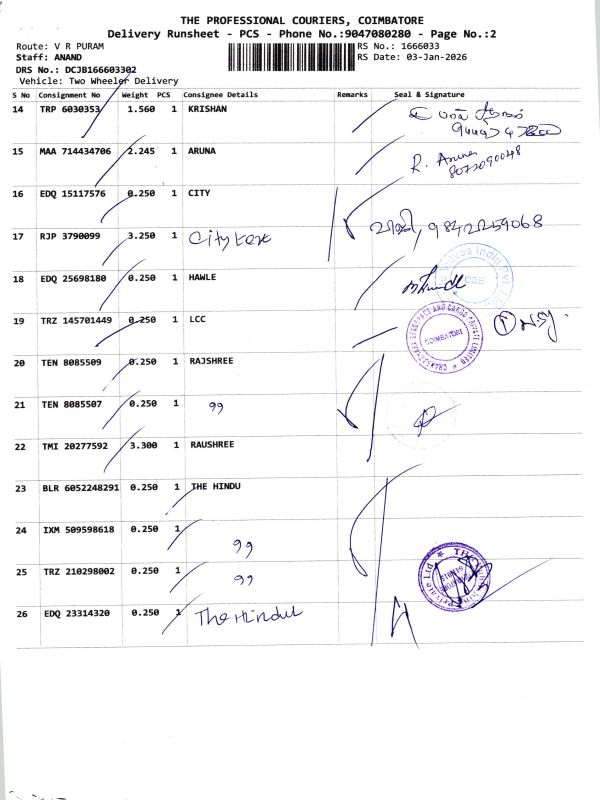 THE PROFESSIONAL COURIERS, COIMBATORE
Delivery Runsheet - PCS - Phone No.:9047080280 - Page No.:2
Route: V R PURAM
RS No.: 1666033
Staff: ANAND
RS Date: 03-Jan-2026
DRS No.: DCJB166603302
Vehicle: Two Wheeler Delivery
S No Consignment No Weight PCS Consignee Details Remarks Seal & Signature
14 TRP 6030353 1.560 1 KRISHAN
15 MAA 714434706 2.245 1 ARUNA R. Aruna
16 EDQ 15117576 0.250 1 CITY
17 RJP 3790099 3.250 1 City
18 EDQ 25698180 0.250 1 HAWLE
19 TRZ 145701449 0.250 1 LCC
COIMBATORE
20 TEN 8085509 0.250 1 RAJSHREE
21 TEN 8085507 0.250 1 99
22 TMI 20277592 3.300 1 RAUSHREE
23 BLR 6052248291 0.250 1 THE HINDU
24 IXM 509598618 0.250 1 99
25 TRZ 210298002 0.250 1 99
26 EDQ 23314320 0.250 1 The Hindu